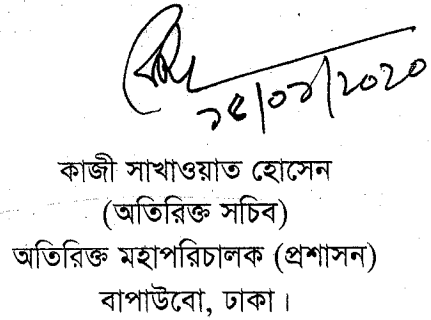 ১৫/০১/২০২০
কাজী সাখাওয়াত হোসেন
(অতিরিক্ত সচিব)
অতিরিক্ত মহাপরিচালক (প্রশাসন)
বাপাউবো, ঢাকা।